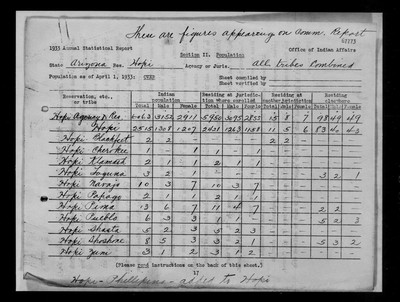 These are figures appearing on Comm. Report
47773
1933 Annual Statistical Report Section II. Population Office of Indian Affairs
State Arizona Res. Hopi Agency or Juris. All tribes Combined
Population as of April 1, 1933: Sheet compiled by
Sheet verified by
Reservation, etc., or tribe Indian population Residing at jurisdiction where enrolled Residing at another jurisdiction Residing elsewhere
Total Male Female Total Male Female Total Male Female Total Male Female
Hopi Agency & Res. 6063 3152 2911 5950 3095 2855 15 8 7 98 49 49
Hopi 2515 1308 1207 2421 1263 1158 11 5 6 83 40 43
Hopi Blackfeet 2 2 - - - - 2 2 - - - -
Hopi Cherokee 1 - 1 1 - 1 - - - - - -
Hopi Klamath 2 1 1 2 1 1 - - - - - -
Hopi Laguna 3 2 1 - - - - - - 3 2 1
Hopi Navajo 10 3 7 10 3 7 - - - - - -
Hopi Papago 2 1 1 2 1 1 - - - - - -
Hopi Pima 13 6 7 11 4 7 - - - 2 2 -
Hopi Pueblo 6 3 3 1 1 - - - - 5 2 3
Hopi Shasta 5 2 3 5 2 3 - - - - - -
Hopi Shoshone 8 5 3 3 2 1 - - - 5 3 2
Hopi Zuni 3 1 2 3 1 2 - - - - - -
(Please read instructions on the back of this sheet.)
17
Hopi - Phillipino - added to Hopi